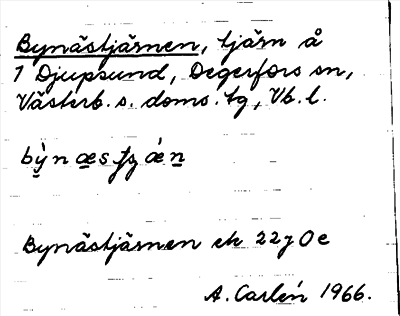 Bynästjärnen, tjärn å
1 Djupsund, Degerfors sn,
Västerb. s. doms. tg, Vb. l.
Bynästjärnen ek 22 J 0 e
A. Carlén 1966.